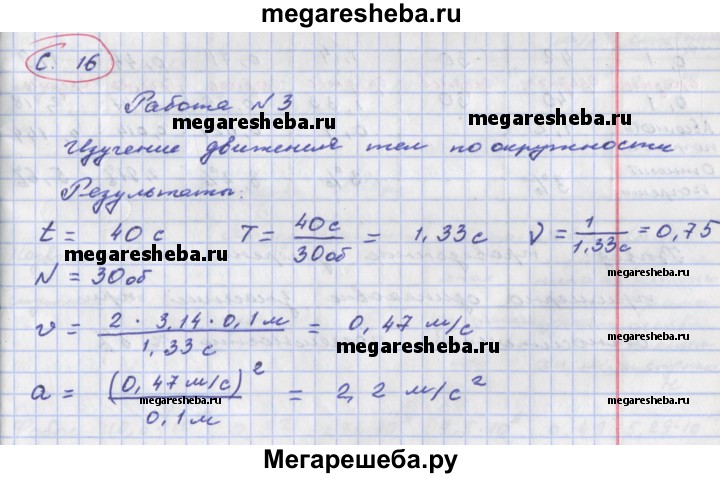 megaresheba.ru
С. 16
Работа №3
megaresheba.ru megaresheba.ru
Изучение движения тел по окружности
Результаты:
t = 40 с T = 40 с / 30 об = 1,33 с ν = 1 / 1,33 с = 0,75
megaresheba.ru megaresheba.ru
N = 30 об
v = 2 · 3,14 · 0,1 м / 1,33 с = 0,47 м/с
megaresheba.ru megaresheba.ru
a = (0,47 м/с)² / 0,1 м = 2,2 м/с²
megaresheba.ru megaresheba.ru
Мегарешеба.ру